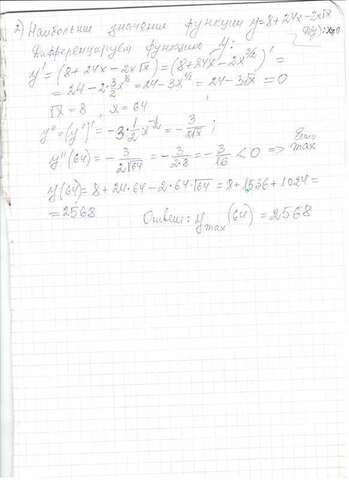 2) Наибольшее значение функции y=8+24x-2x√x
Дифференцируем функцию y:
y'=(8+24x-2x√x)=(8+24x-2x^{3/2})'=
=24-2·\frac{3}{2}x^{½}=24-3x^{½}=24-3√x=0
√x=8, x=64
y''=(y')'=-3·\frac{1}{2}x^{-½}=-\frac{3}{2√x};
y''(64)=-\frac{3}{2√64}=-\frac{3}{2·8}=-\frac{3}{16}<0 => max
y(64)=8+24·64-2·64·√64=8+1536+1024=
=2568
Ответ: y_{max}(64)=2568